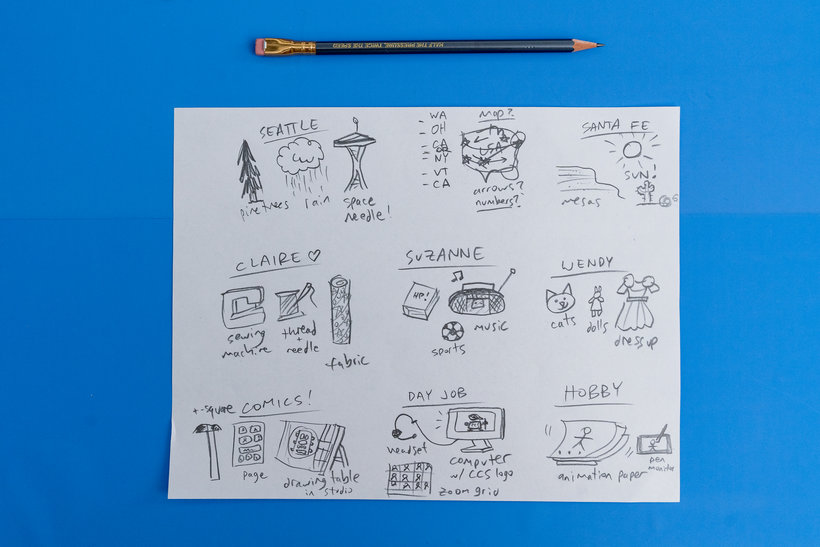 HALF THE PRESSURE, TWICE THE SPEED
SEATTLE
pine trees
rain
space
needle!
WA
OH
GA
NY
VT
CA
Map?
USA
arrows?
numbers?
SANTA FE
SUN!
mesas
CLAIRE ♡
sewing
machine
thread
+
needle
fabric
SUZANNE
HP!
music
sports
WENDY
cats
dolls
dress up
COMICS!
t-square
page
drawing table
in studio
DAY JOB
headset
computer
w/ CCS logo
zoom grid
HOBBY
animation paper
pen
monitor